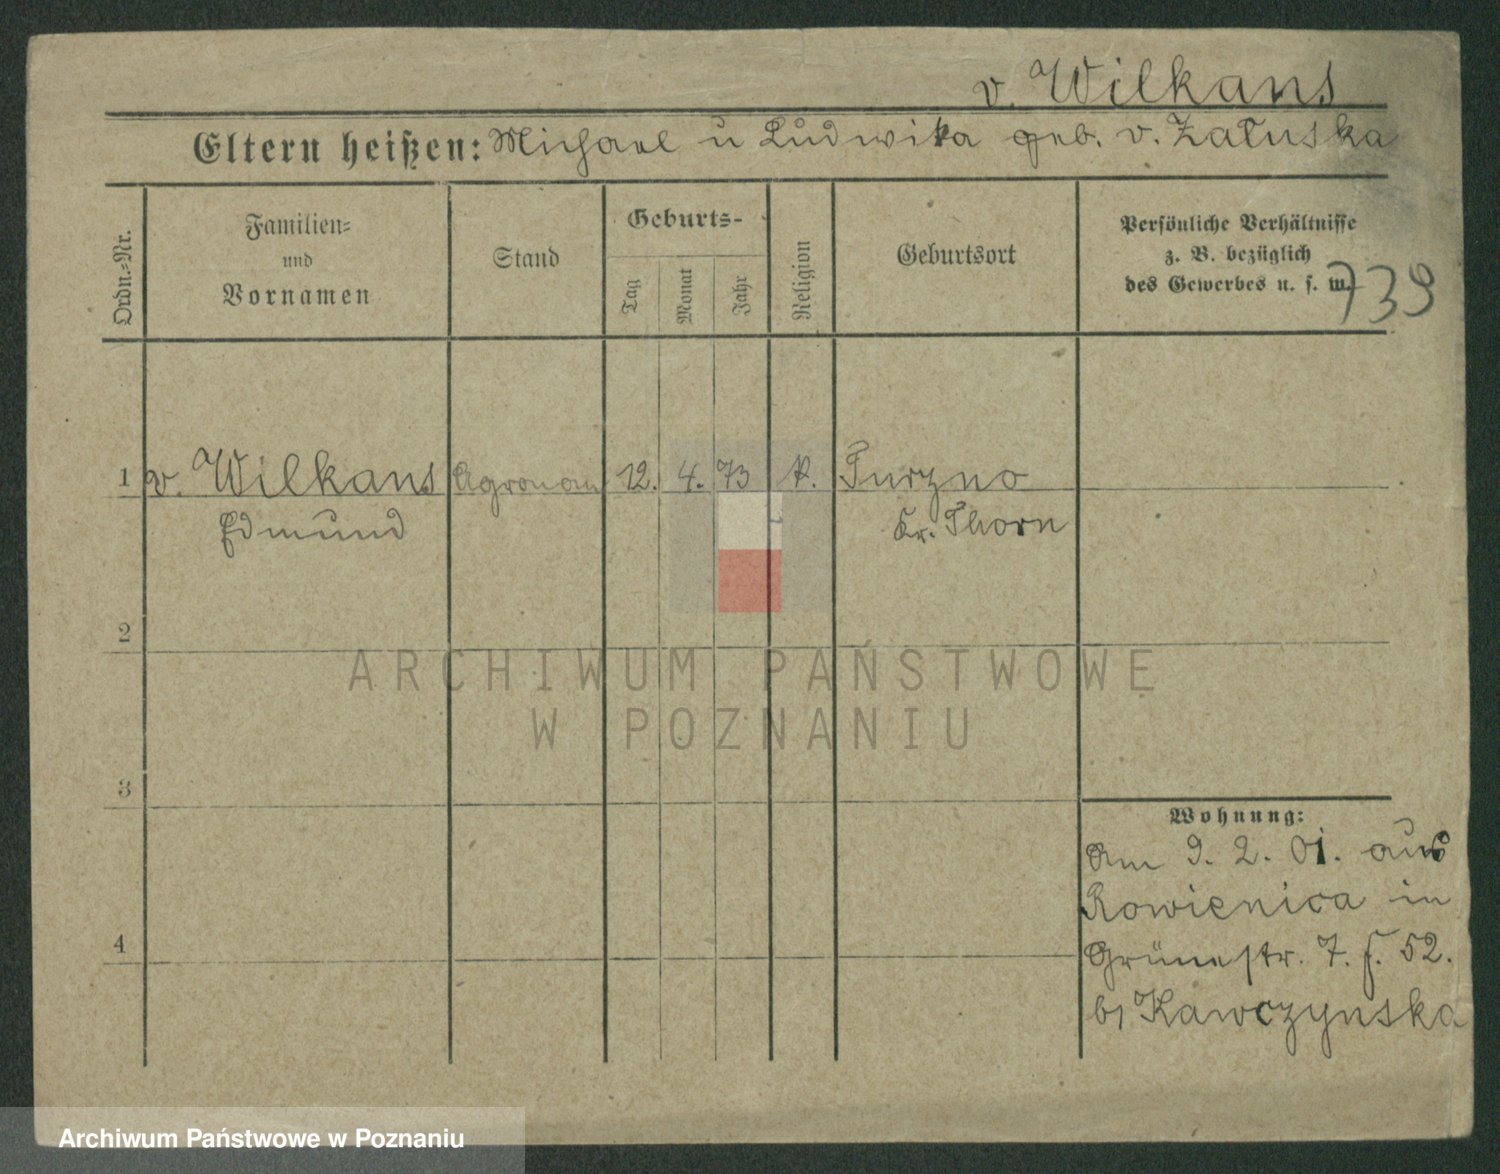 v. Wilkans
Eltern heißen: Michael u Ludwika geb. v. Załuska
Ordn.-Nr.
Familien-
und
Vornamen
Stand
Geburts-
Tag
Monat
Jahr
Religion
Geburtsort
Persönliche Verhältnisse
z. B. bezüglich
des Gewerbes u. s. w.
739
1 v. Wilkans Agronom 12. 4. 73 k. Turzno
Edmund Kr. Thorn
2
ARCHIWUM PAŃSTWOWE
W POZNANIU
3
Wohnung:
Am 9. 2. 01. aus
Rowienica in
4
Grünestr. 7. f. 52.
b/ Kawczynska
Archiwum Państwowe w Poznaniu